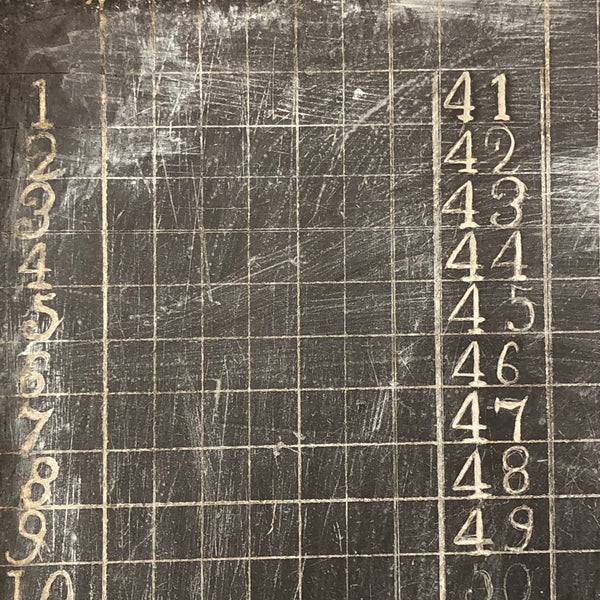 1 41
2 42
3 43
4 44
5 45
6 46
7 47
8 48
9 49
10 50